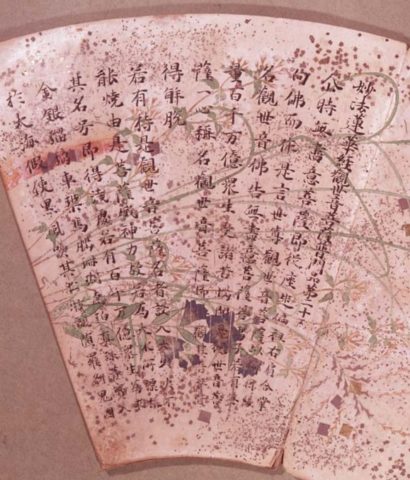 妙法蓮華經觀世音菩薩普門品第二十五
尒時無盡意菩薩即從座起偏袒右肩合掌
向佛而作是言世尊觀世音菩薩以何因緣
名觀世音佛告無盡意菩薩善男子若有
量百千万億衆生受諸苦惱聞是觀世音菩
薩一心稱名觀世音菩薩即 觀
得解脫
若有持是觀世音菩薩名者設入大火火不
能燒由是菩薩威神力故若為大水所漂
其名号即得淺處若有百千万億衆生為求
金銀瑠璃車璖馬瑙珊瑚虎珀真珠等寶入
於大海假使黒風吹其船舫飄墮羅刹鬼國